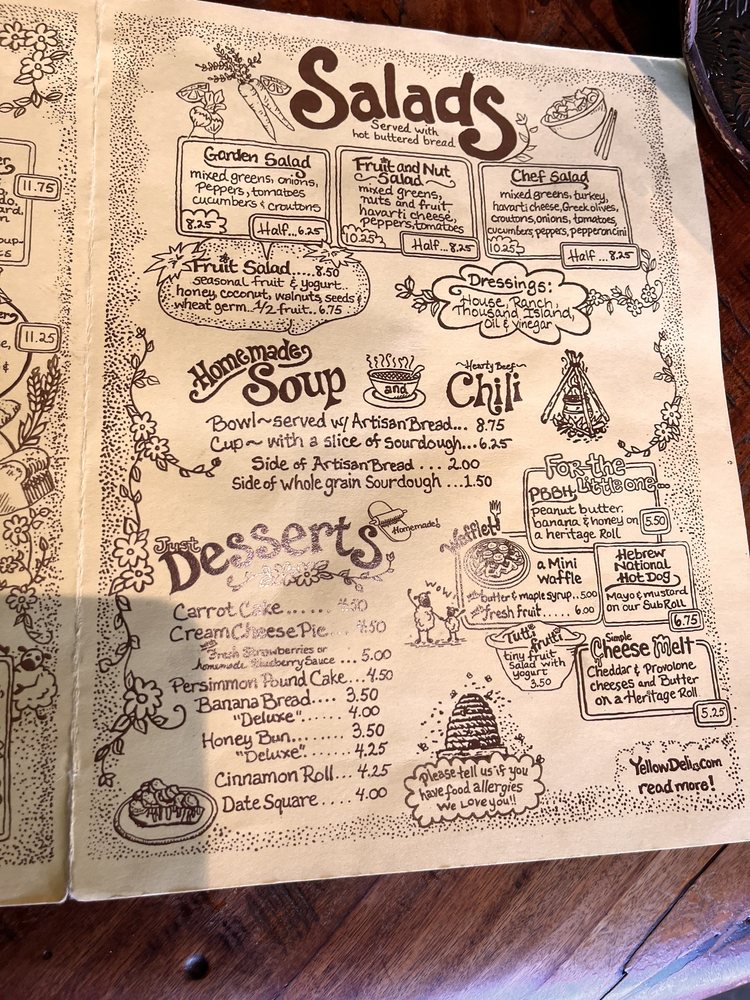 11.75
11.25
Salads
Served with
hot buttered bread
Garden Salad
mixed greens, onions,
Peppers, tomatoes
cucumbers & croutons
8.25
Half...6.25
Fruit and Nut
Salad
mixed greens,
nuts and fruit
havarti cheese,
peppers, tomatoes
10.25
Half...8.25
Chef Salad
mixed greens, turkey,
havarti cheese, Greek olives,
croutons, onions, tomatoes,
cucumbers, peppers, pepperoncini
10.25
Half...8.25
Fruit Salad.....8.50
seasonal fruit & yogurt..
honey, coconut, walnuts, seeds &
wheat germ..1/2 fruit..6.75
Dressings:
House, Ranch,
Thousand Island,
Oil & Vinegar
Homemade
Soup
and
~Hearty Beef~
Chili
Bowl~served w/ Artisan Bread... 8.75
Cup~ with a slice of sourdough...6.25
Side of Artisan Bread . . . 2.00
Side of whole grain Sourdough ...1.50
For the
Little one...
PBBH
peanut butter
banana & honey on
a heritage Roll
5.50
Just
Desserts
Homemade!
Carrot Cake......
Cream Cheese Pie...
with Fresh Strawberries or
homemade Blueberry Sauce ... 5.00
Persimmon Pound Cake...4.50
Banana Bread.... 3.50
"Deluxe"...... 4.00
Honey Bun.... 3.50
"Deluxe"...... 4.25
Cinnamon Roll... 4.25
Date Square.... 4.00
Wafflet
a Mini
Waffle
with butter & maple syrup...5.00
with fresh fruit..... 6.00
Hebrew
National
Hot Dog
Mayo & mustard
on our Sub Roll
6.75
wow!
Tutti
fruiti
tiny fruit
salad with
yogurt
3.50
Simple
Cheese Melt
Cheddar & Provolone
cheeses and Butter
on a Heritage Roll
5.25
Please tell us if you
have food allergies
We Love you!!
YellowDeli.com
read more!